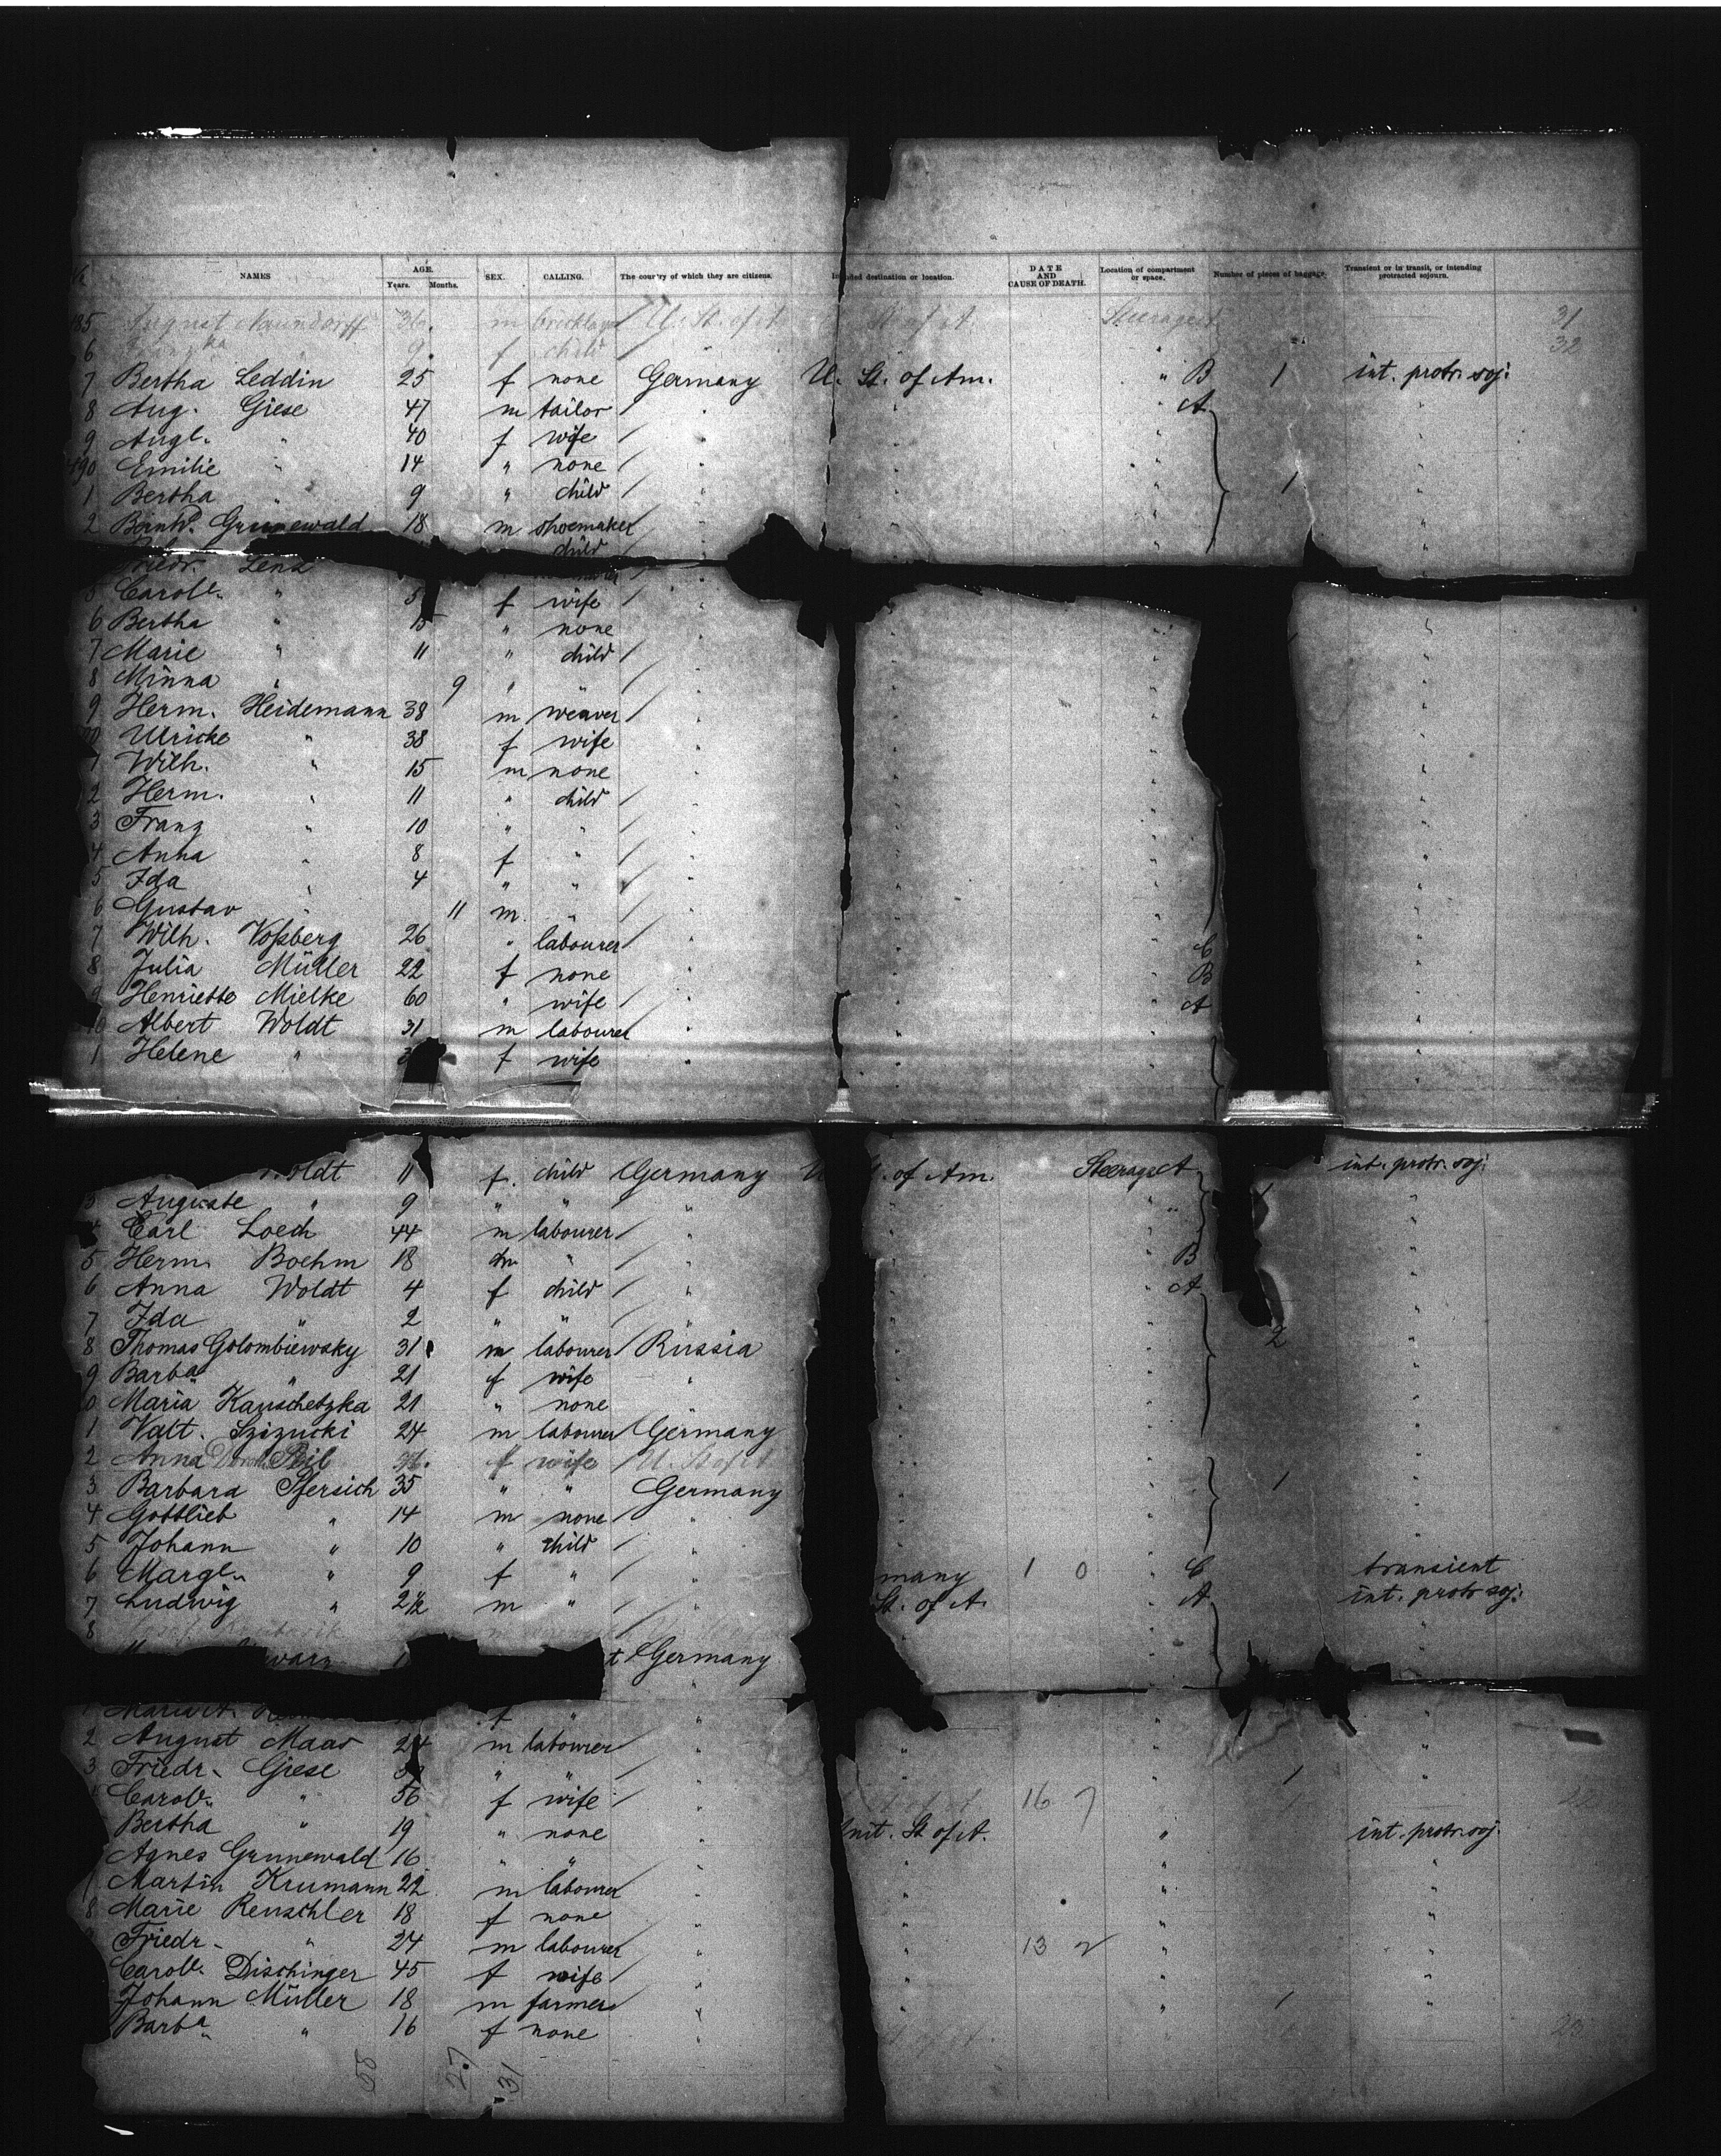 NAMES AGE. Years. Months. SEX. CALLING. The country of which they are citizens. destination or location. DATE AND CAUSE OF DEATH. Location of compartment or space. Number of pieces of baggage. Transient or in transit, or intending protracted sojourn.
485 August Naundorff 36 m bricklayer U. St. of A St. of A. Steerage 31
6 9 f child " 32
7 Bertha Leddin 25 f none Germany U. St. of Am. " B 1 int. protr. soj.
8 Aug. Giese 47 m tailor / " " " A "
9 Augl. " 40 f wife / " " " "
490 Emilie " 14 " none / " " " "
1 Bertha " 9 " child / " " " 1 "
2 Grunewald 18 m shoemaker " " " "
child /
Friedr. Lenz
Carol. " 5 f wife / " " " "
6 Bertha " 15 " none " " " "
7 Marie " 11 " child / " " " "
8 Minna " 9 " " / " " " "
9 Herm. Heidemann 38 m weaver / " " " "
Ulricke " 38 f wife " " " "
1 Wilh. " 15 m none " " " "
2 Herm. " 11 " child / " " " "
3 Franz " 10 " " / " " " "
4 Anna " 8 f " / " " " "
5 Ida " 4 " " / " " " "
6 Gustav " 11 m " / " " " "
7 Wilh. Voßberg 26 " labourer / " " " C "
8 Julia Müller 22 f none " " " B "
9 Henriette Mielke 60 " wife / " " " A "
10 Albert Woldt 31 m labourer " " " "
1 Helene " 3 f wife " " " "
oldt 11 f. child Germany U of Am. Steerage A int. protr. soj.
3 Auguste " 9 " " " " " 1 "
4 Carl Loech 44 m labourer / " " " "
5 Herm. Boehm 18 m " / " " " B "
6 Anna Woldt 4 f child / " " " A "
7 Ida " 2 " " / " " " "
8 Thomas Golombiewsky 31 m labourer / Russia " " 2 "
9 Barba " 21 f wife " " " "
0 Maria Kauschetzka 21 " none " " " "
1 Valt. Szizucki 24 m labourer Germany " " "
2 Anna Peil f wife U. St of A " " "
3 Barbara Pfersich 35 " " Germany " " 1 "
4 Gottlieb " 14 m none " " " "
5 Johann " 10 " child / " " " "
6 Margl. " 9 f " / " many 1 0 " C transient
7 Ludwig " 2½ m " / " St. of A. " A int. protr. soj.
8 m " " "
t Germany " " "
1 f " " " "
2 August Maas 24 m labourer " " " "
3 Friedr. Giese " " / " " 1 "
Carol. " 56 f wife / " 16 7
Bertha " 19 " none " Unit. St of A. " int. protr. soj.
Agnes Grunewald 16 " " " " " "
Martin Krumann 22 m labourer " " " "
8 Marie Renschler 18 f none " " " "
Friedr. " 24 m labourer " " 13 2 " "
Carol. Dischinger 45 f wife / " " " "
Johann Müller 18 m farmer " " " 1 "
Barba " 16 f none " 23
58 27 31